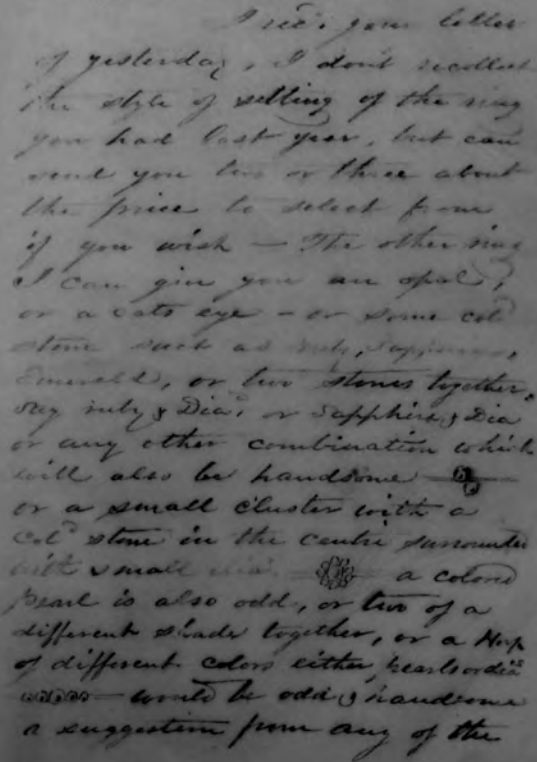 I rec'd your letter
of yesterday, I don't recollect
the style of setting of the ring
you had last year, but can
send you two or three about
the price to select from
if you wish — The other ring
I can give you an opal,
or a cats eye — or some cold
stone such as ruby, sapphire,
Emerald, or two stones together,
say ruby & Dia? or Sapphire & Dia
or any other combination which
will also be handsome —
or a small cluster with a
Cold stone in the centre surrounded
with small dia. — a colored
pearl is also odd, or two of a
different shade together, or a Hoop
of different colors either pearls or dias
— would be odd & handsome
a suggestion from any of the